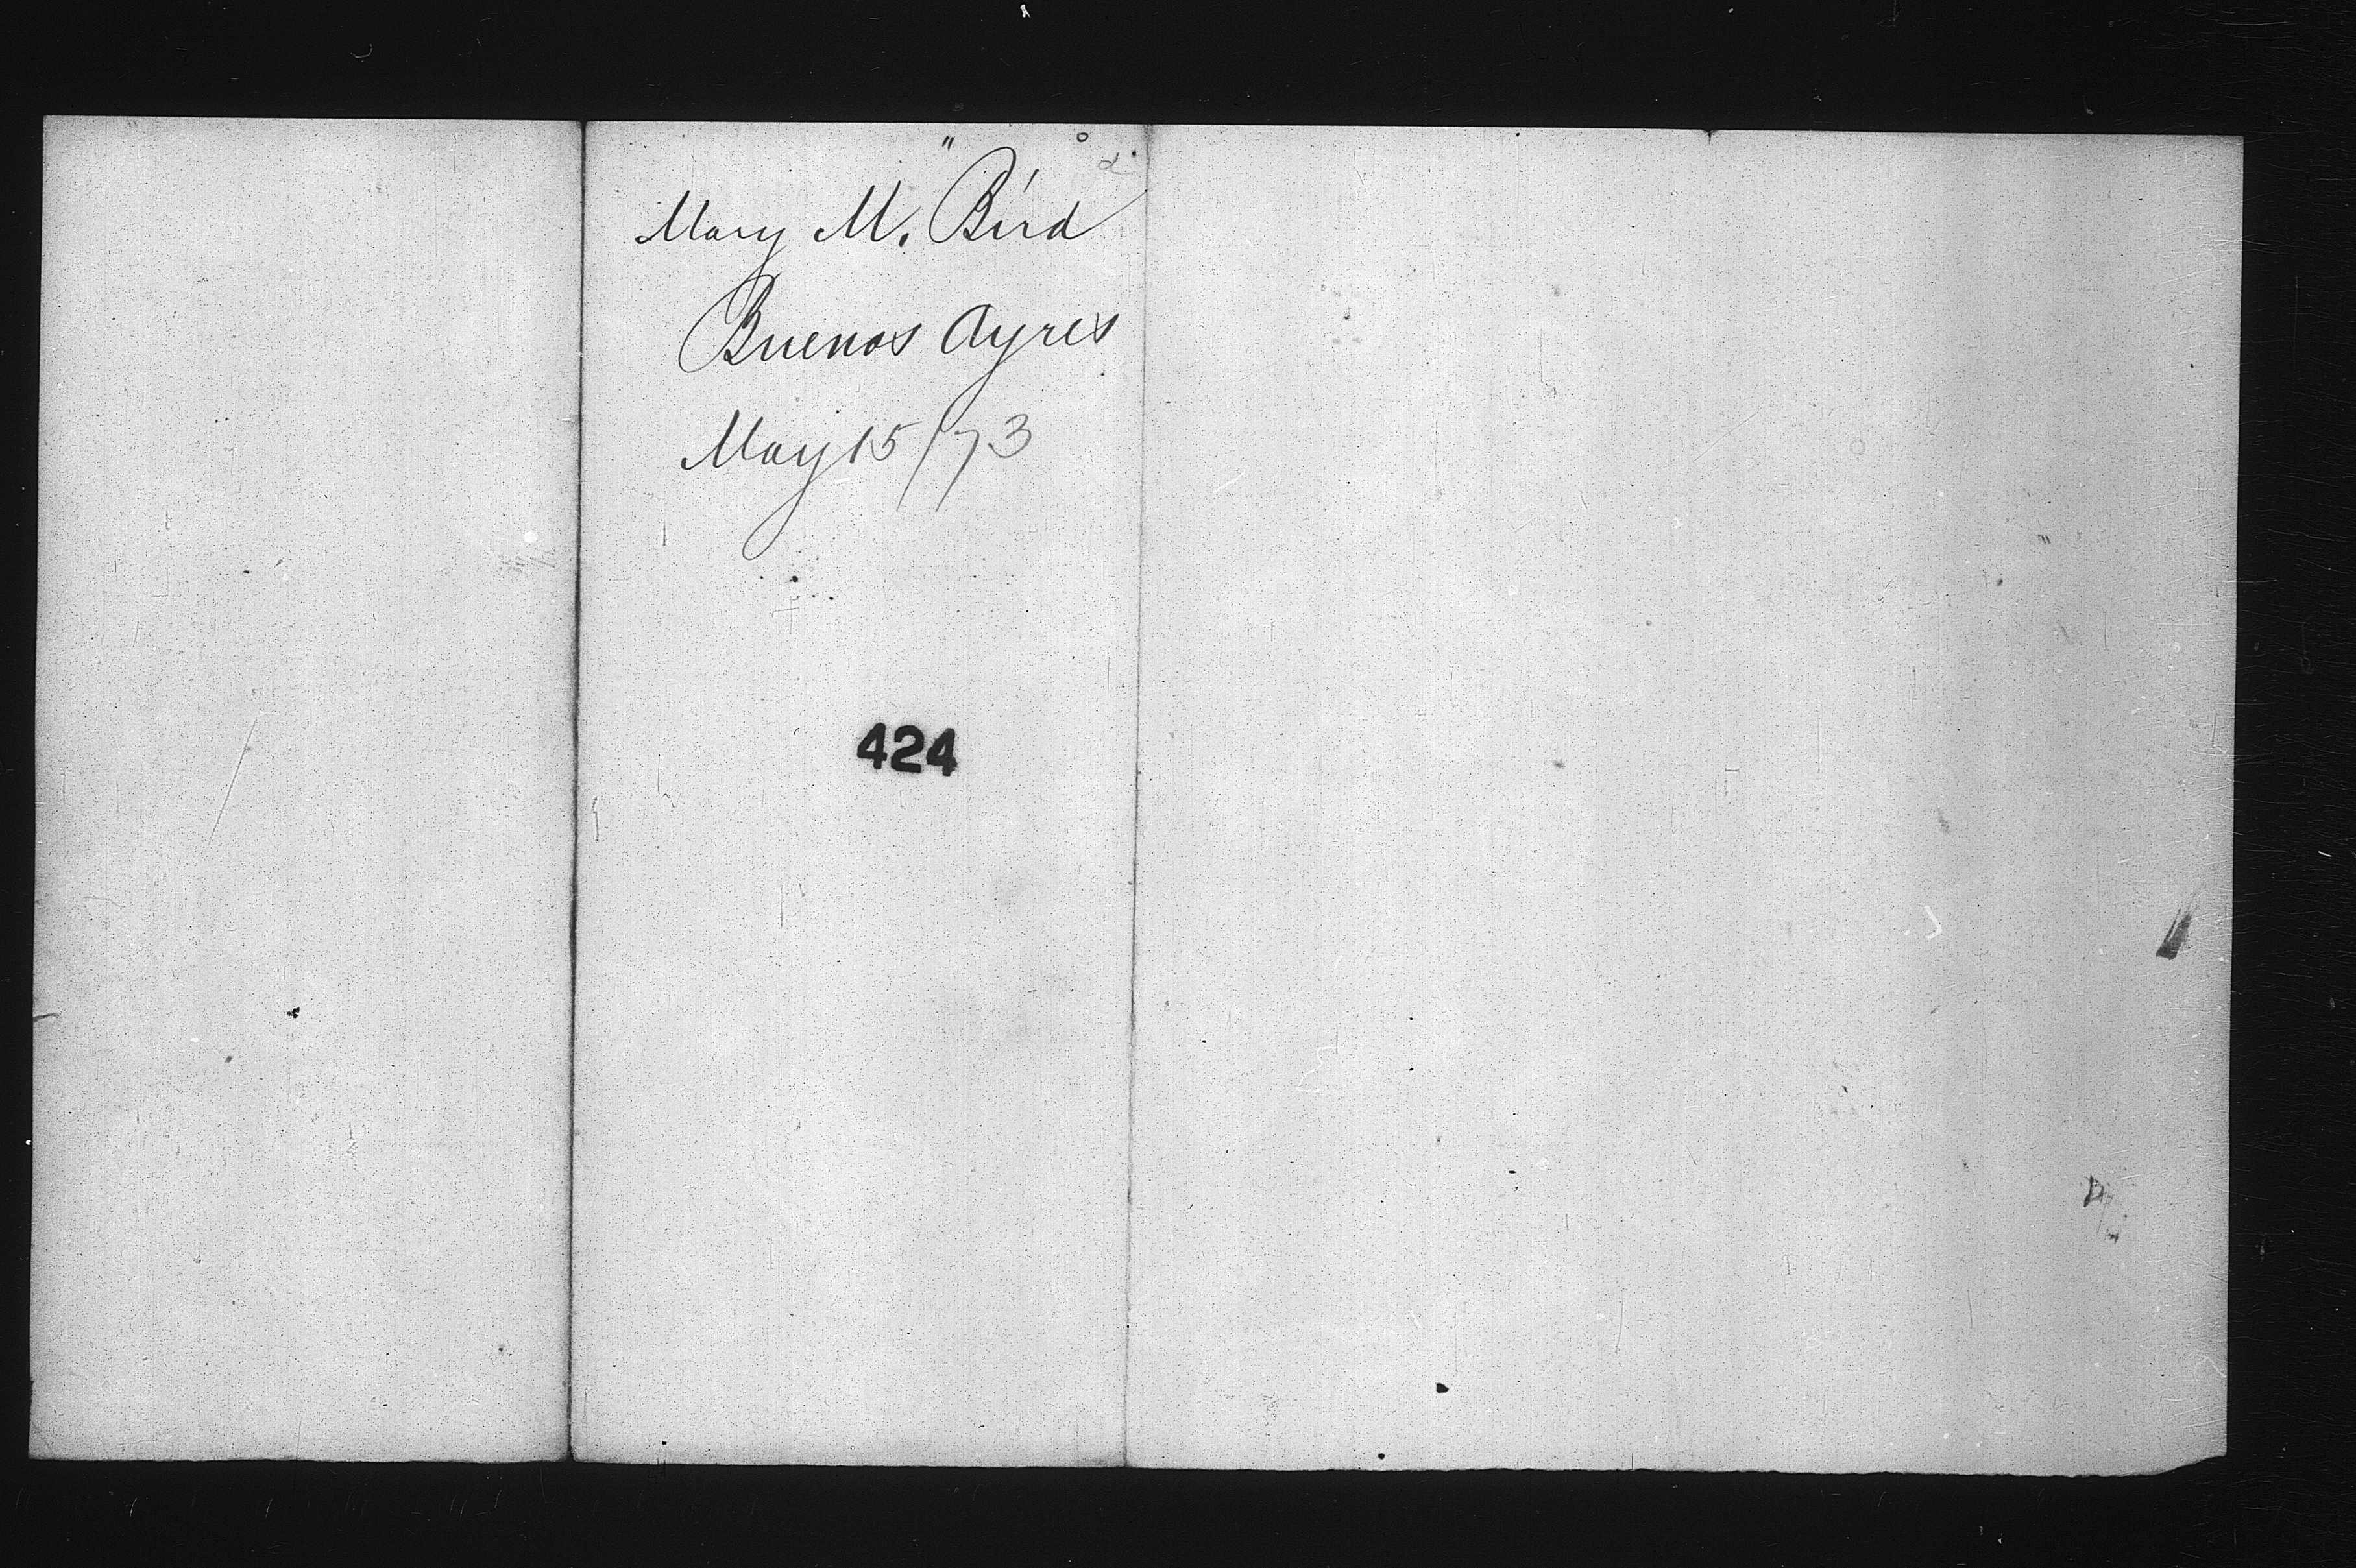 Mary M. Bird
Buenos Ayres
May 15/73
424